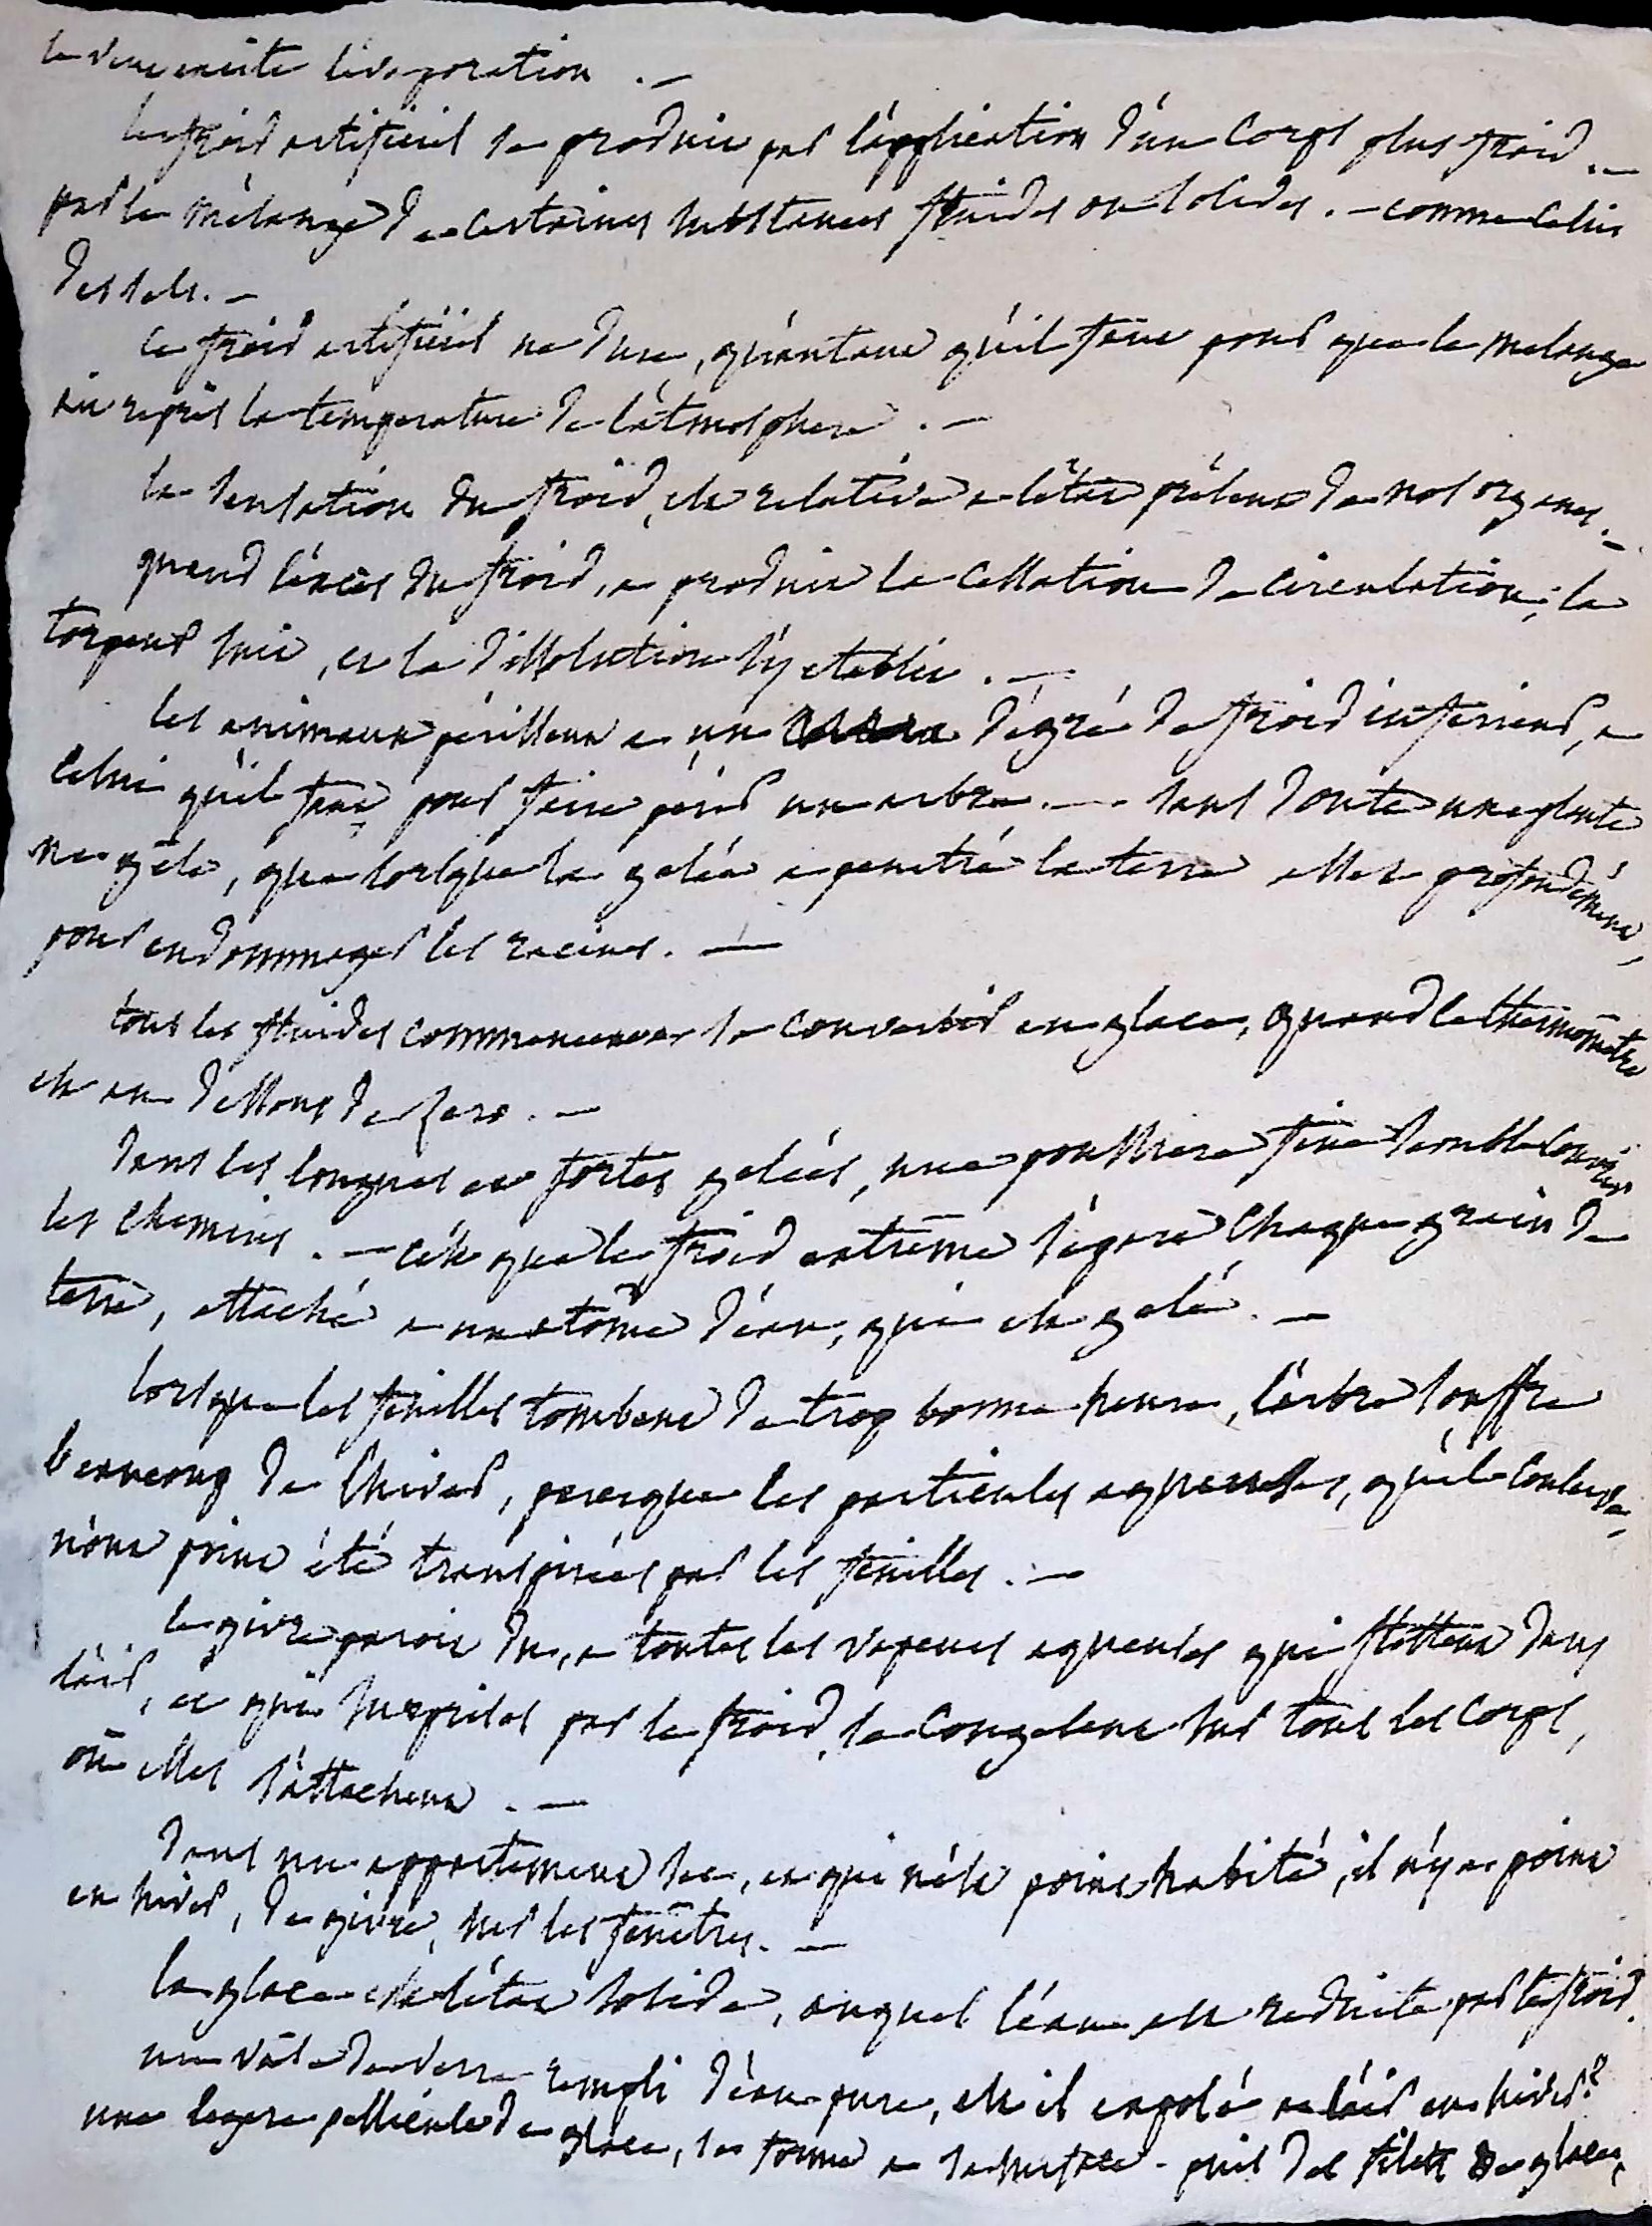 le vent excite l'évaporation . —
le froid artificiel se produit par l'application d'un corps plus froid . —
par le mélange de certaines substances fluides ou solides . — comme celui
des sels . —
ce froid artificiel ne dure , qu'autant qu'il faut pour que le melange
ait repris la température de l'atmosphere . —
la sensation du froid , est relative a l'état présent de nos organes . —
quand l'excès du froid , a produit la cessation de circulation , la
torpeur suit , et la dissolution s'y etablit . —
les animaux périssent a un dégré de froid inferieur , a
celui qu'il faut pour faire périr un arbre . — sans doute une plante
ne gèle , que lorsque la gelée a penetré la terre assez profondément ,
pour endommager les racines . —
tous les fluides commencent a se convertir en glace , quand le thermometre
est au dessous de zero . —
dans les longues et fortes gelées , une poussiere fine semble couvrir
les chemins . — c'est que le froid extrême sépare chaque grain de
terre , attaché a un atôme d'eau , qui est gelé . —
lorsque les feuilles tombent de trop bonne heure , l'arbre souffre
beaucoup de l'hiver , parceque les particules aqueuses , qu'il conserve ,
n'ont point été transpirées par les feuilles . —
le givre paroit du , a toutes les vapeurs aqueuses qui flottent dans
l'air , et qui surprises par le froid , se congelent sur tous les corps ,
où elles s'attachent . —
dans un appartement sec , et qui n'est point habité , il n'y a point
en hiver , de givre , sur les fenêtres . —
la glace est l'état solide , auquel l'eau est reduite par le froid .
un vase de verre rempli d'eau pure , est il exposé a l'air en hiver ?
une legere pellicule de glace , se forme a la surface - puis des filets de glace ,